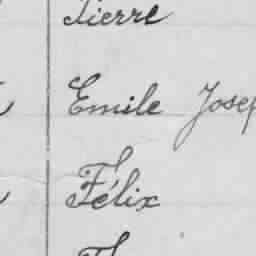 Pierre
Emile Josep
Félix